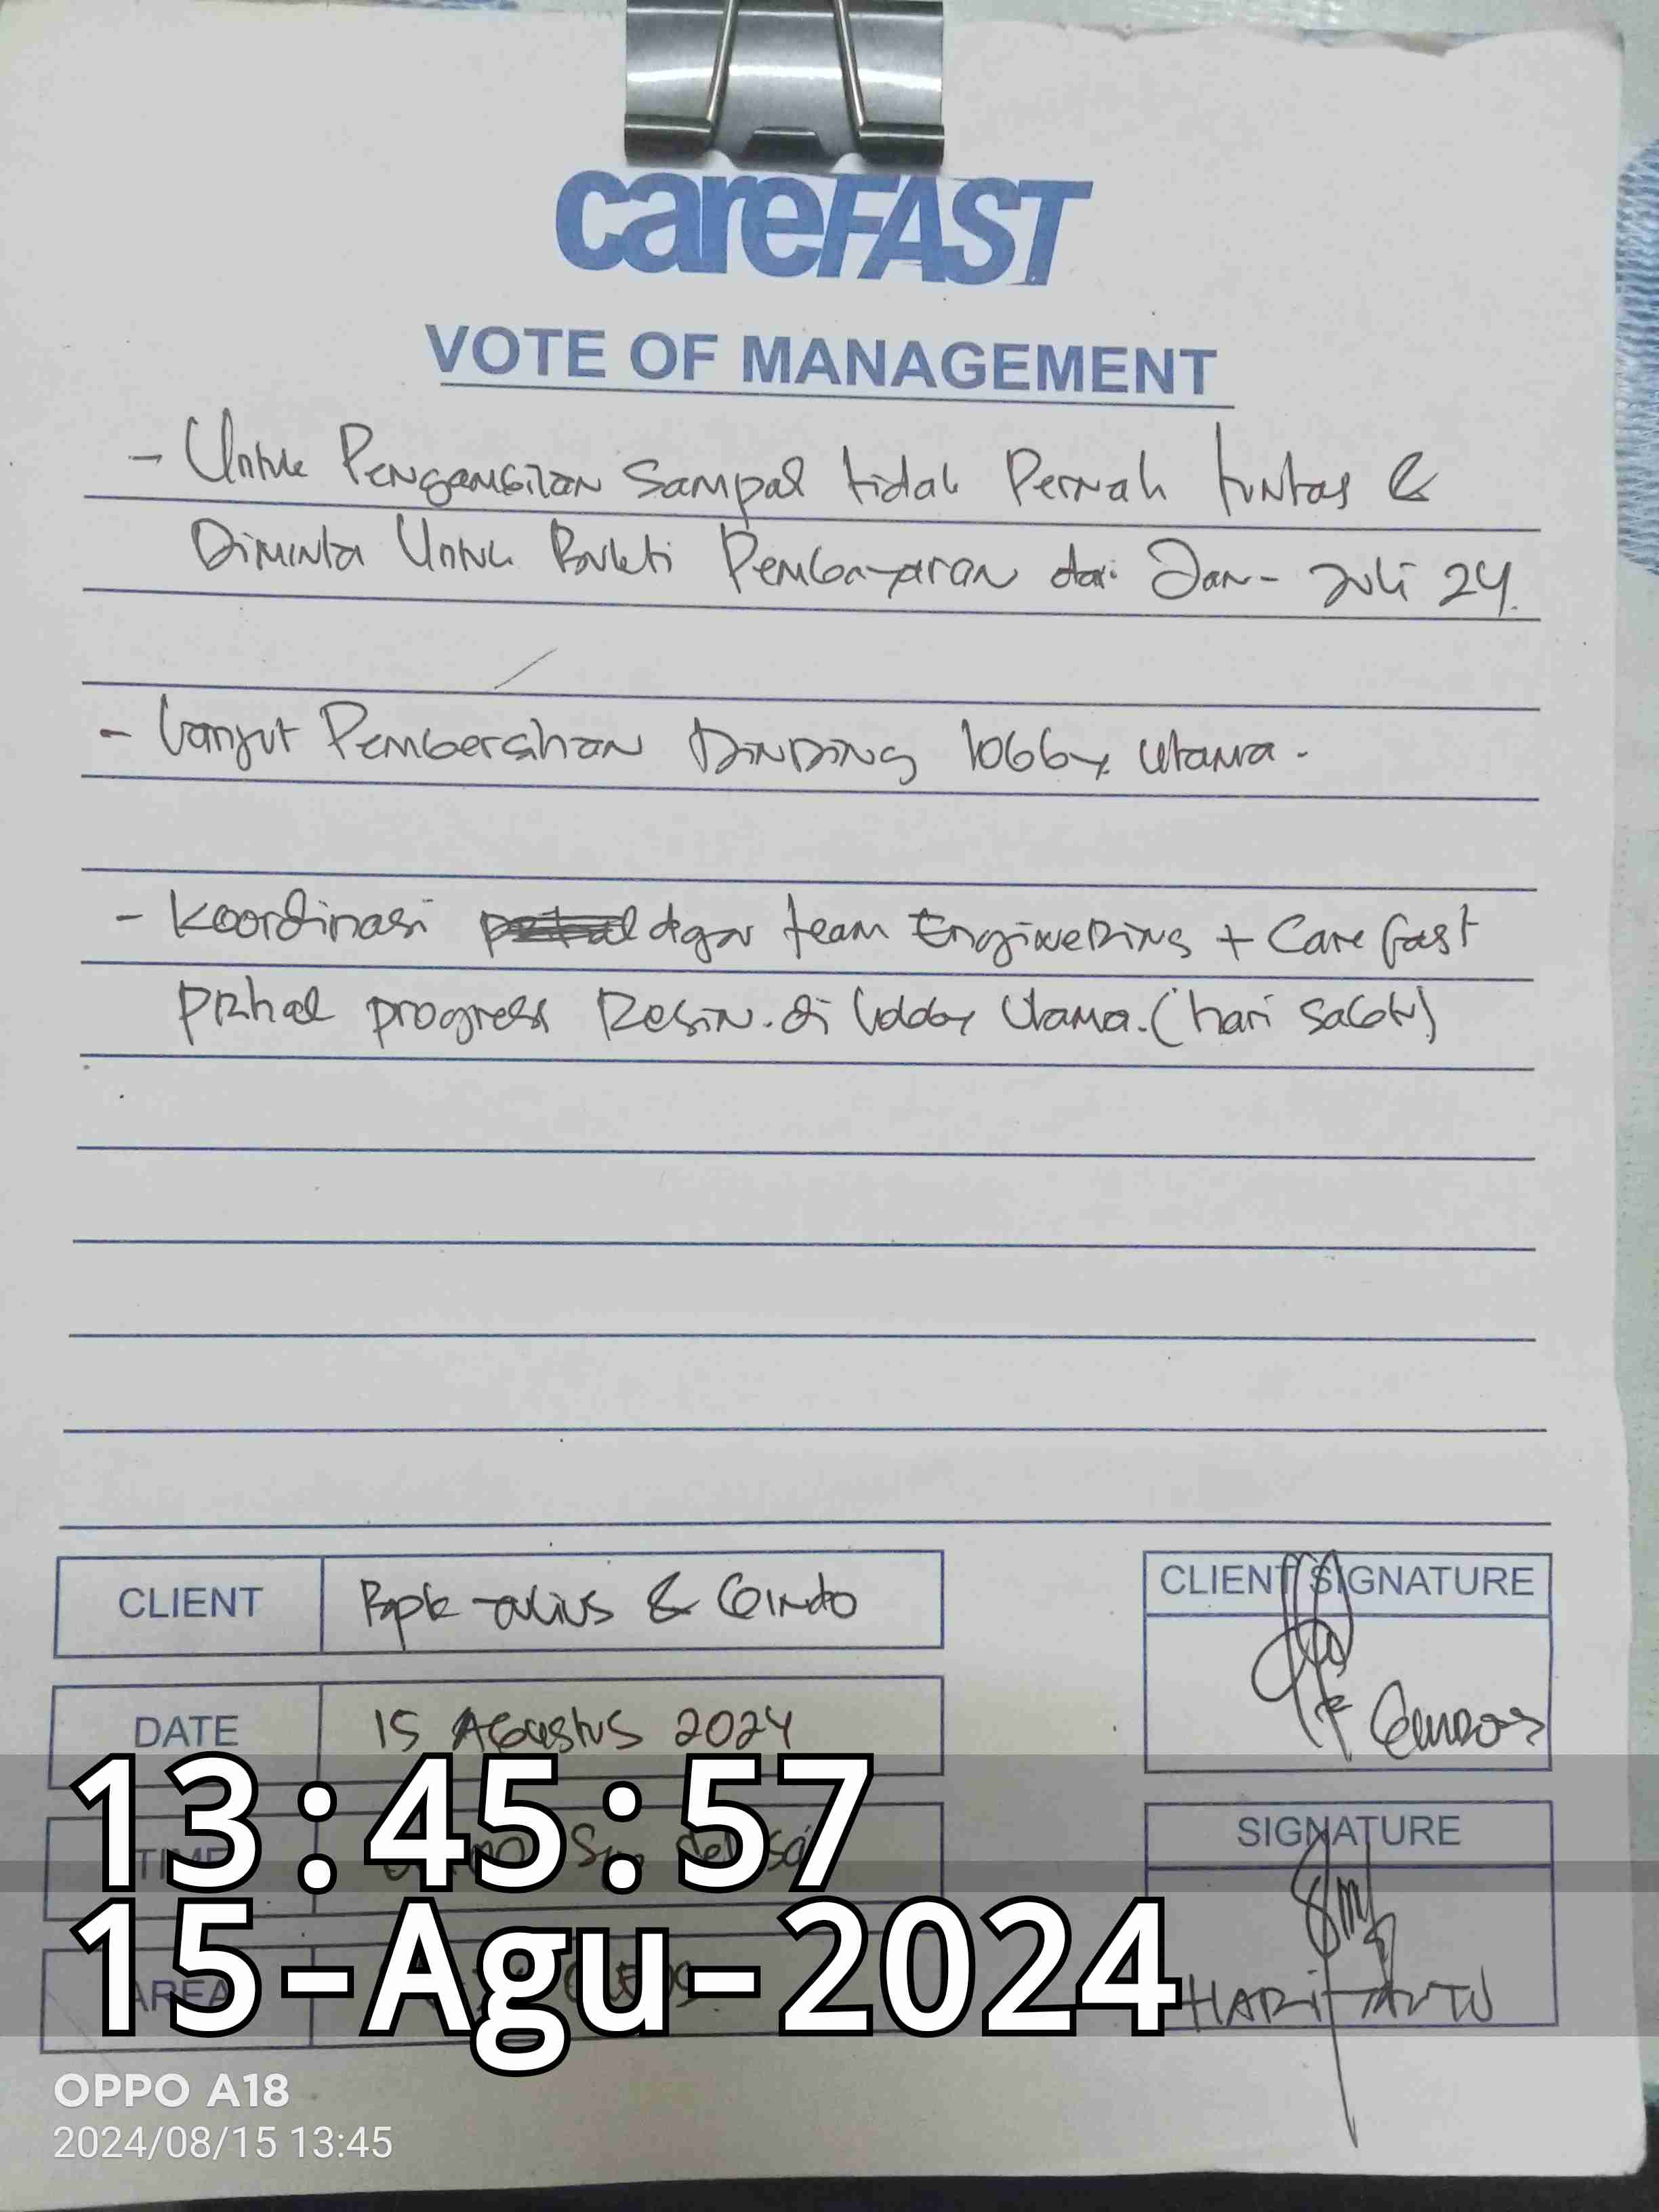 careFAST
VOTE OF MANAGEMENT
- Untuk Pengambilan Sampah tidak Pernah tuntas &
Diminta Untuk Bukti Pembayaran dari Jan- Juli 24.
- Lanjut Pembersihan Dinding lobby utama.
- Koordinasi dgn team Engineering + Carefast
Prihal progress Resin di lobby Utama. (hari Sabtu)
CLIENT
Bpk Julius &
CLIENT SIGNATURE
DATE
15 Agustus 2024
TIME
SIGNATURE
13:45:57
AREA
15-Agu-2024
HARIYANTO
OPPO A18
2024/08/15 13:45